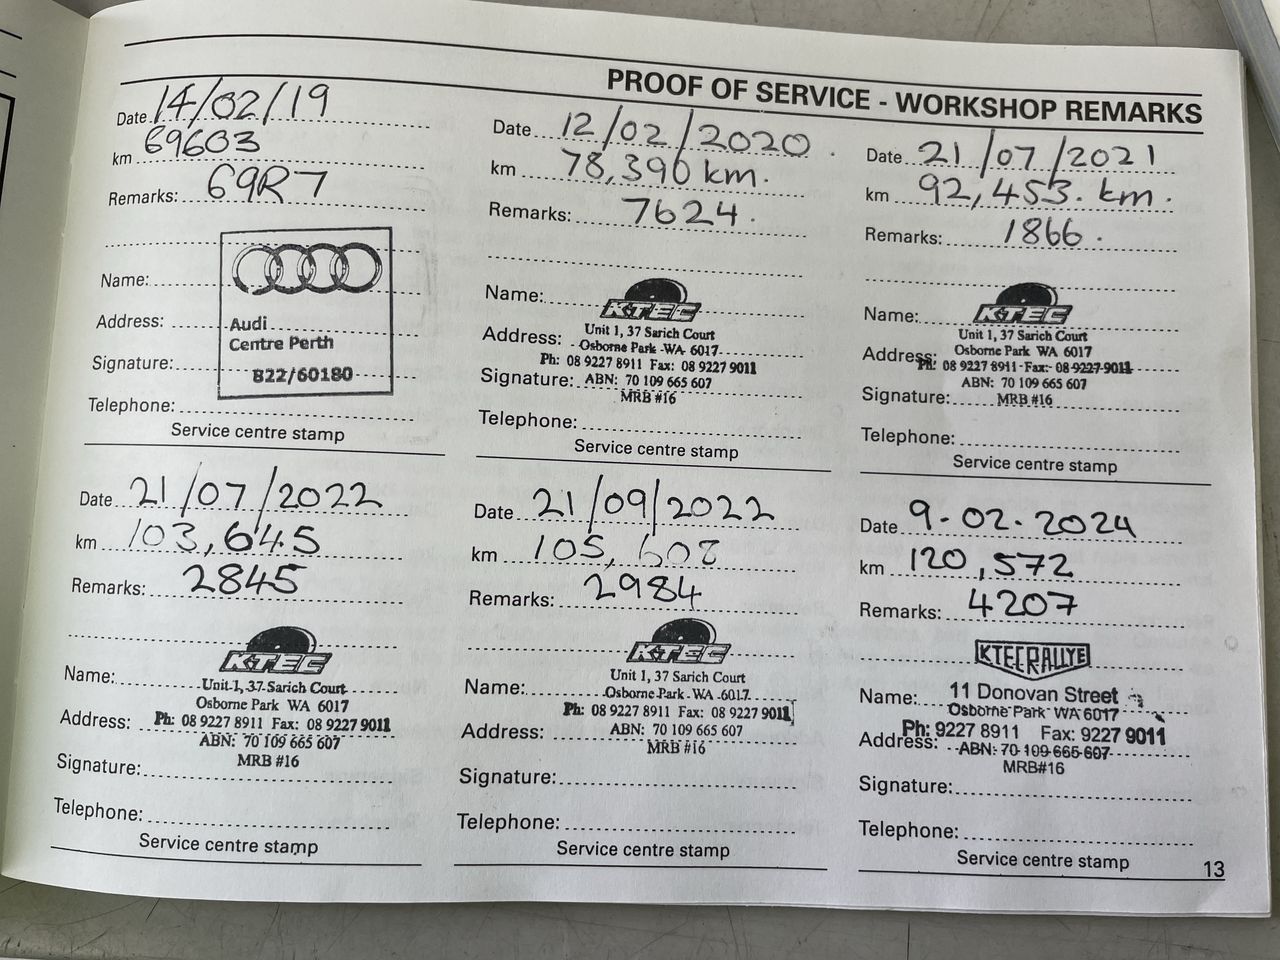 PROOF OF SERVICE - WORKSHOP REMARKS
Date 14/02/19
km 69603
Remarks: 69R7
Name:
Address:
Audi
Centre Perth
Signature:
B22/60180
Telephone:
Service centre stamp
Date 12/02/2020
km 78,390 km.
Remarks: 7624.
Name:
KTEC
Unit 1, 37 Sarich Court
Address:
Osborne Park WA 6017
Ph: 08 9227 8911 Fax: 08 9227 9011
Signature:
ABN: 70 109 665 607
MRB #16
Telephone:
Service centre stamp
Date 21/07/2021
km 92,453. km.
Remarks: 1866.
Name:
KTEC
Unit 1, 37 Sarich Court
Osborne Park WA 6017
Address:
Ph: 08 9227 8911 Fax: 08 9227 9011
ABN: 70 109 665 607
Signature:
MRB #16
Telephone:
Service centre stamp
Date 21/07/2022
km 103,645
Remarks: 2845
KTEC
Name:
Unit 1, 37 Sarich Court
Osborne Park WA 6017
Address:
Ph: 08 9227 8911 Fax: 08 9227 9011
ABN: 70 109 665 607
MRB #16
Signature:
Telephone:
Service centre stamp
Date 21/09/2022
km 105,608
Remarks: 2984
KTEC
Unit 1, 37 Sarich Court
Name:
Osborne Park WA 6017
Ph: 08 9227 8911 Fax: 08 9227 9011
Address:
ABN: 70 109 665 607
MRB #16
Signature:
Telephone:
Service centre stamp
Date 9.02.2024
km 120,572
Remarks: 4207
KTEC RALLYE
Name:
11 Donovan Street
Osborne Park WA 6017
Ph: 9227 8911 Fax: 9227 9011
Address:
ABN: 70 109 665 607
MRB#16
Signature:
Telephone:
Service centre stamp
13